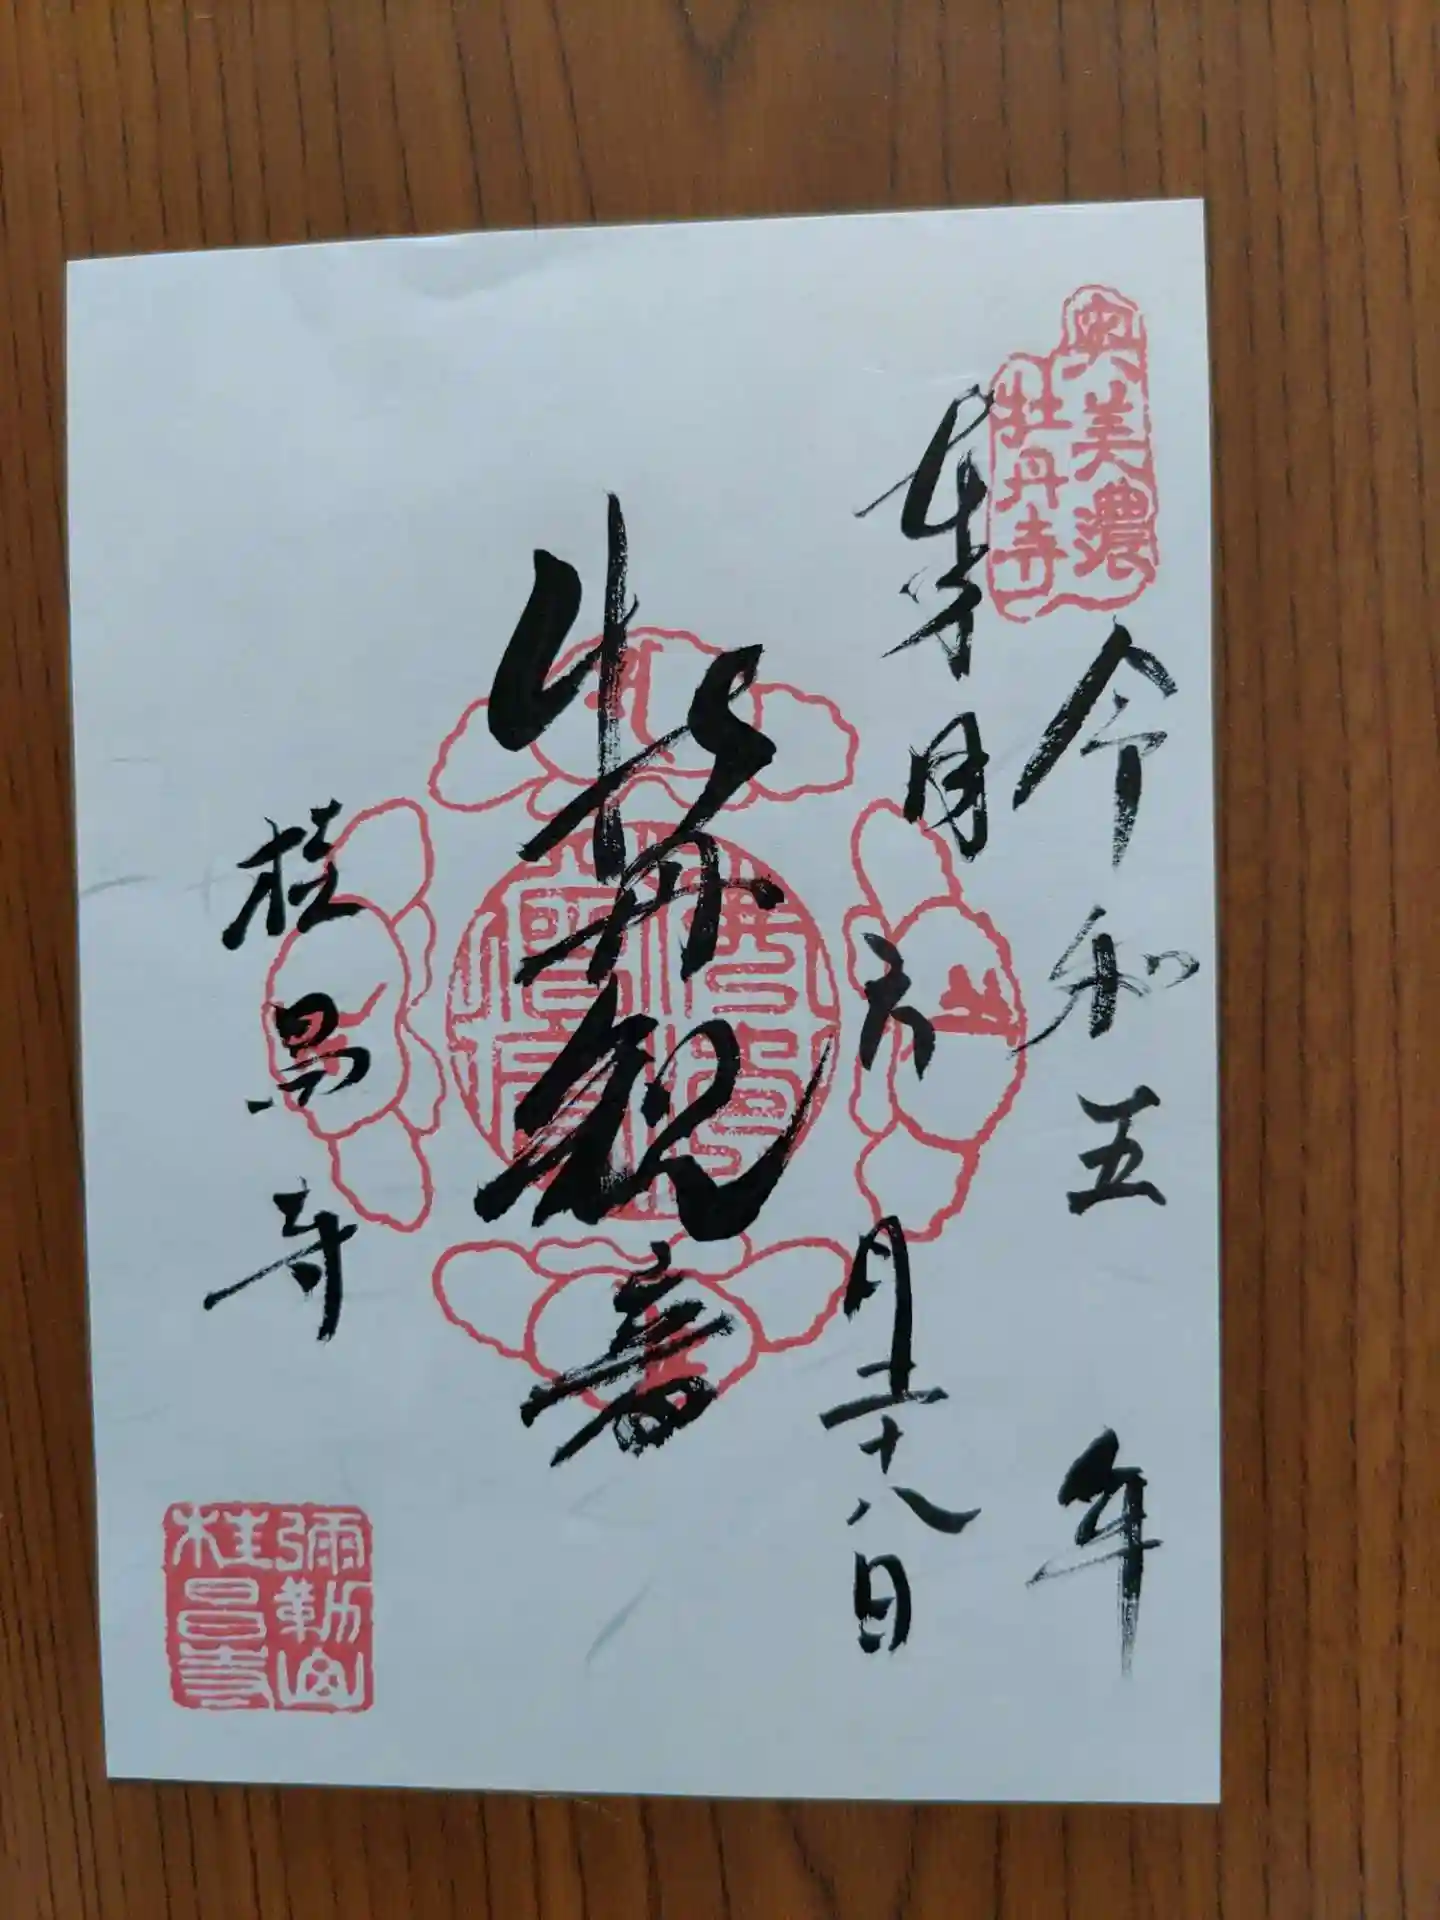 奥美濃
牡丹寺
令和五年
奉拝
月
月二十八日
牡丹観音
佛法僧寶
桂昌寺
彌勒山
桂昌寺